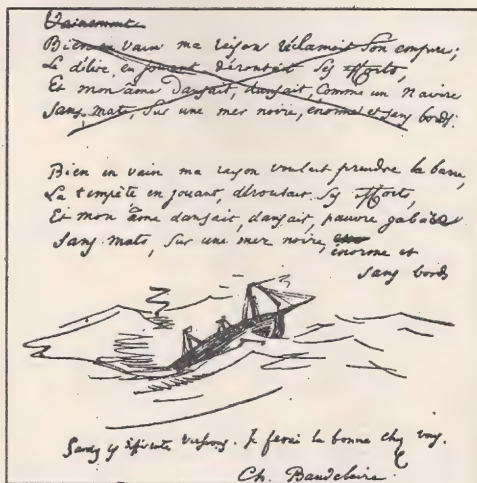 Vainement
Bien en vain ma raison réclamait son empire;
Le délire, en jouant, déroutait ses efforts,
Et mon âme dansait, dansait, comme un navire
Sans mats, sur une mer noire, énorme et sans bords.
Bien en vain ma raison voulait prendre la barre,
La tempête en jouant, déroutait ses efforts,
Et mon âme dansait, dansait, pauvre gabare
Sans mats, sur une mer noire, énorme et
sans bords
versions. Je ferai la bonne chez vous.
Ch. Baudelaire.